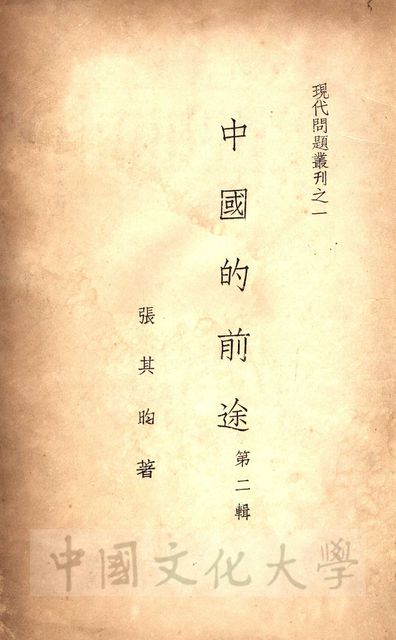 現代問題叢刊之一
中國的前途
第二輯
張其昀著
中國文化大學